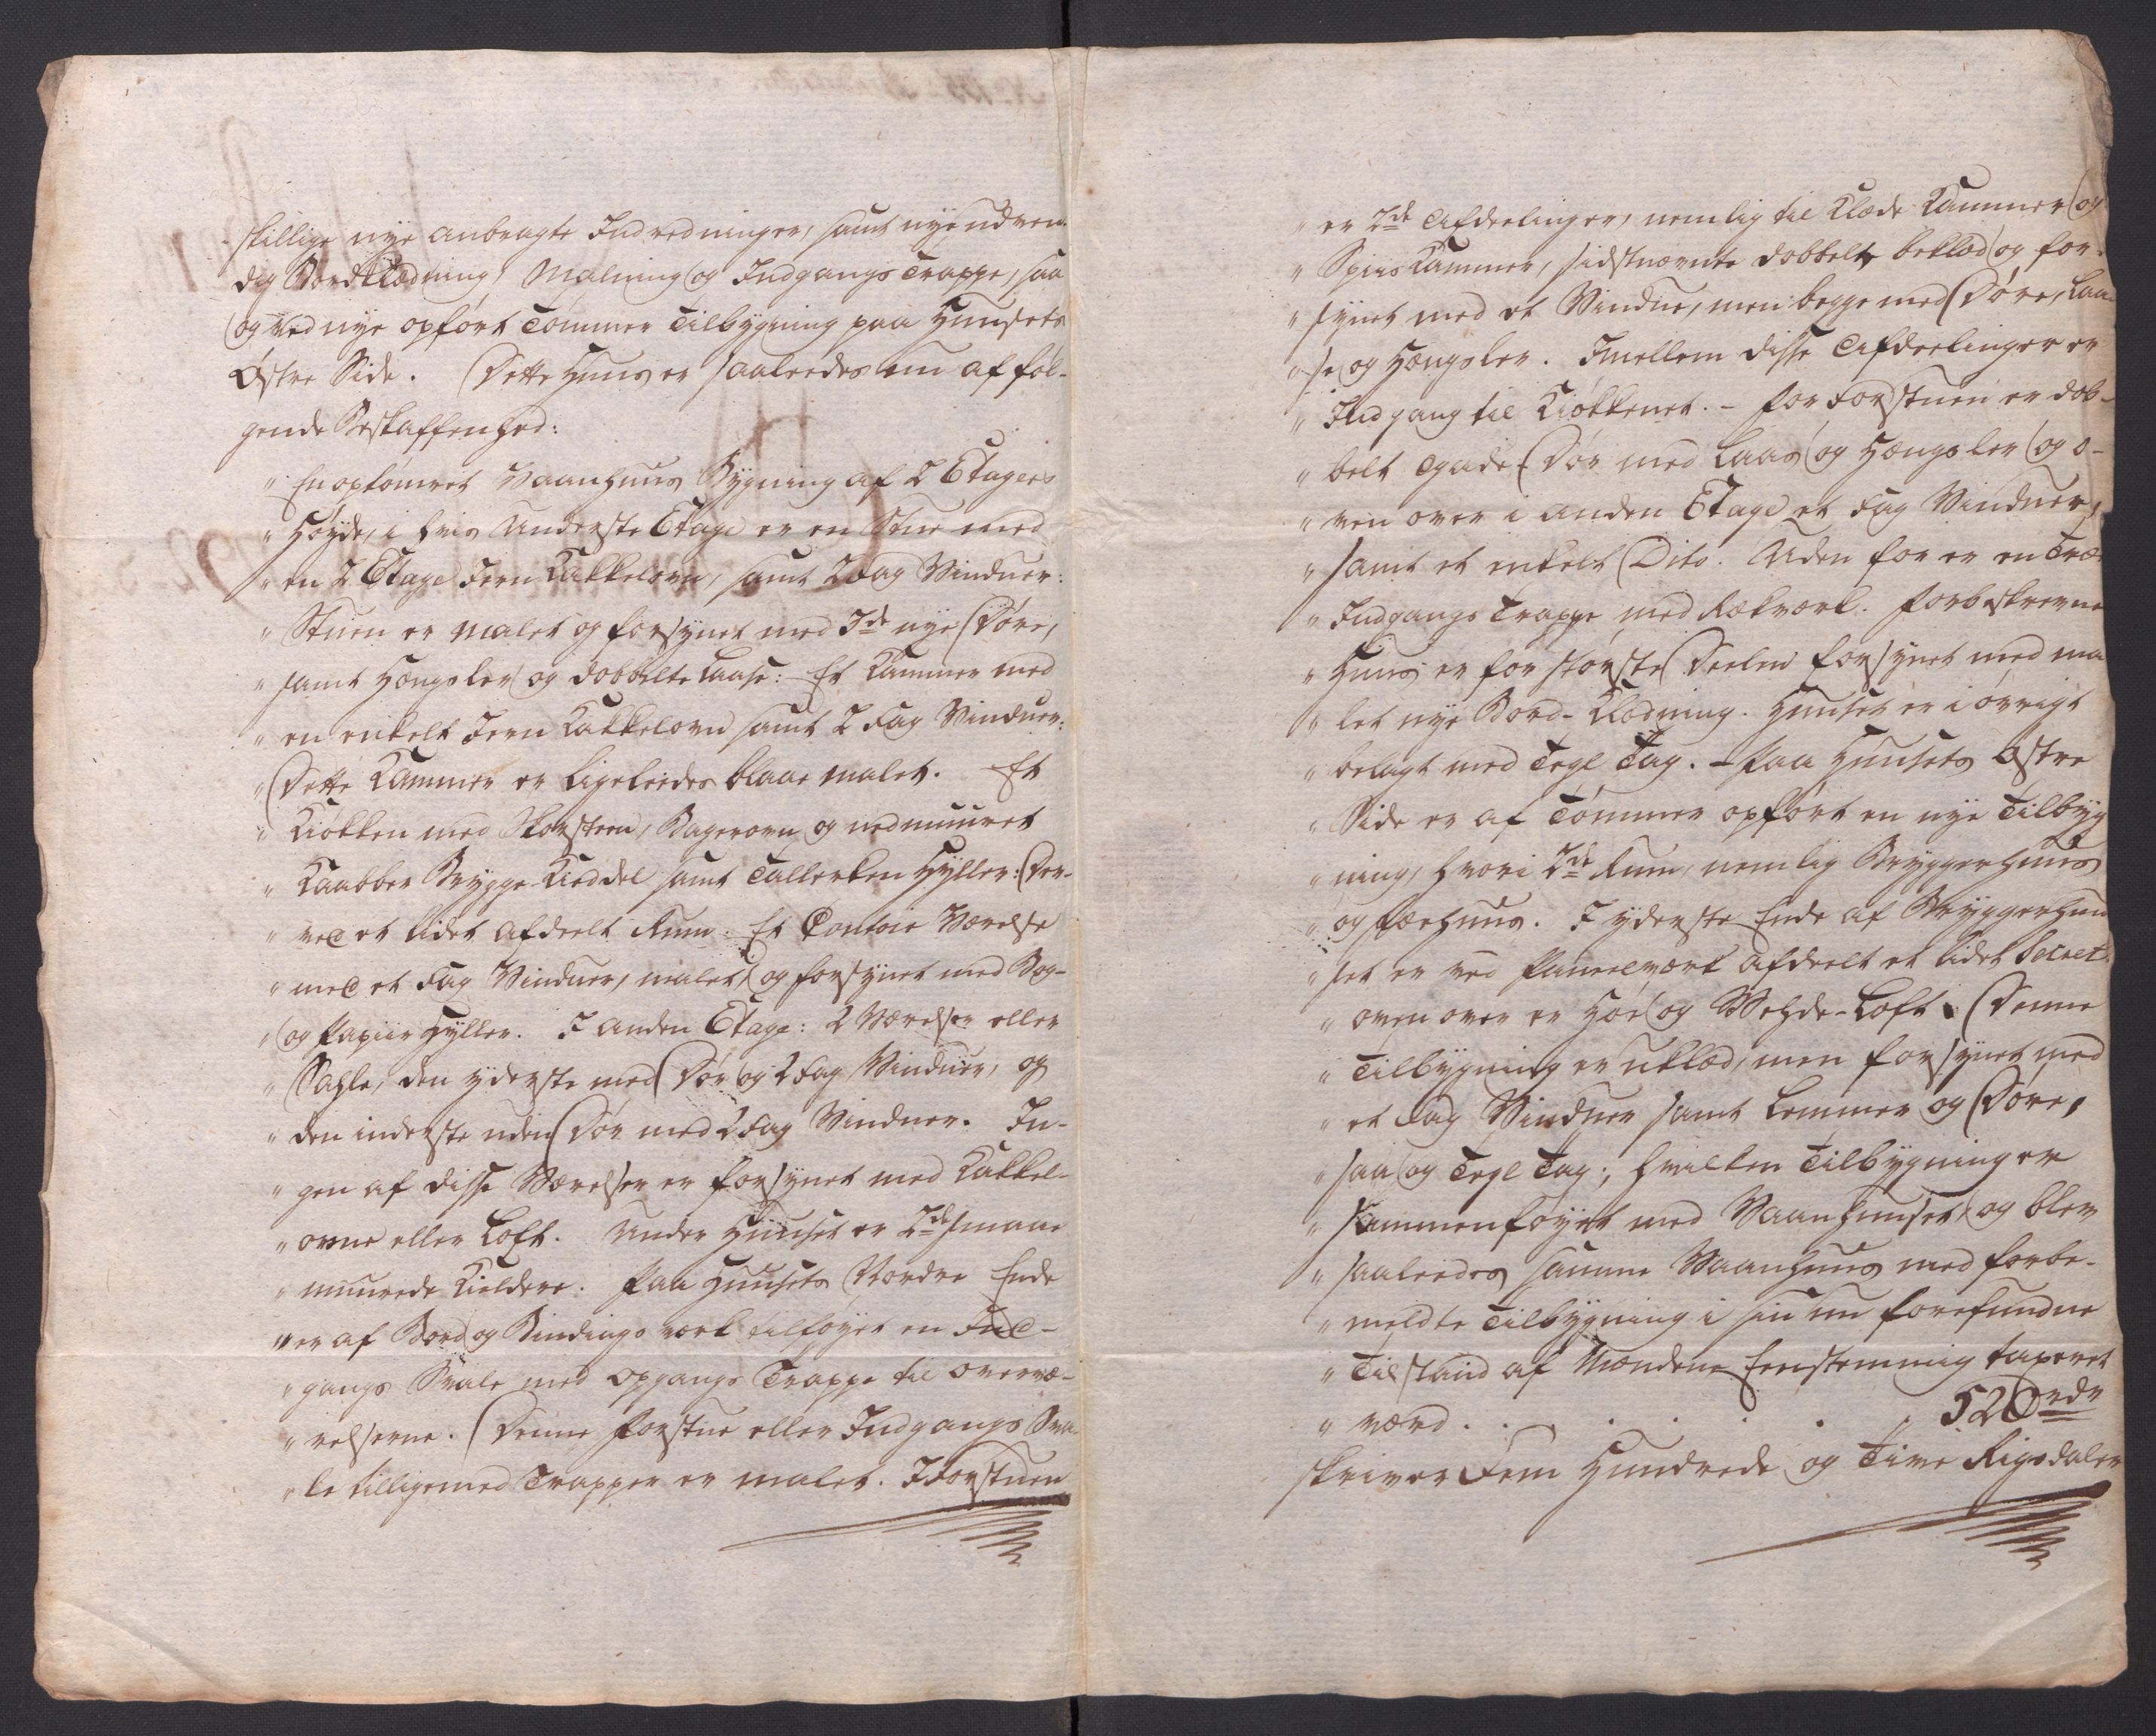 skillige nye anbragte Indredninger, samt nye udven-
dig Bordklædning, Malning og Indgangs Trappe, saa
og ved nye opført Tømmer Tilbygning paa Huusets
Østre Side. Dette Huus er saaleedes nu af føl-
gende Beskaffenhed:
" En optømret Vaanhuus Bygning af 2 Etagers
" Høyde, i hvis Underste Etage er en Stue med
" en 2 Etage Jern Kakkelovn, samt 2 Fag Vinduer:
" Stuen er malet og forsynet med 3de nye Døre,
" samt Hængsler og dobbelte Laase: Et Kammer med
" en enkelt Jern Kakkelovn samt 2 Fag Vinduer:
" Dette Kammer er ligeleedes blaae malet. Et
" Kiøkken med Skorsteen, Bagerovn og nedmuuret
" Kaabber Brygge-Kieddel samt Tallerken Hyller: Der-
" ved et lidet afdeelt Rum. Et Contoir Værelse
" med et Fag Vinduer, malet og forsynet med Bog-
" og Papiir Hyller. I anden Etage: 2 Værelser eller
" Sahle, den yderste med Dør og 2 Fag Vinduer, og
" den inderste uden Dør med 2 Fag Vinduer. In-
" gen af disse Værelser er forsynet med Kakkel-
" ovne eller Loft. Under Huuset er 2de smaae
" muurede Kieldere. Paa Huusets Nordre Ende
" er af Bord og Bindings værk tilføyet en Ind-
" gangs Svale med Opgangs Trappe til Overvæ-
" relserne. Denne Forstue eller Indgangs Sva-
" le tilligemed Trappen er malet. I Forstuen
" er 2de Afdeelinger, nemlig til Klæde Kammer og
" Spiis Kammer, sidstnævnte dobbelt beklæd og for-
" synet med et Vindue, men begge med Døre, Laa-
" se og Hængsler. Imellem disse Afdeelinger er
" Indgang til Kiøkkenet. - For Forstuen er dob-
" belt Gade-Dør med Laas og Hængsler og o-
" ven over i anden Etage et Fag Vinduer,
" samt et enkelt Dito. Uden for er en Træ-
" Indgangs Trappe med Rækværk. Forbeskrevne
" Huus er for største Deelen forsynet med ma
" let nye Bord-Klædning. Huuset er i øvrigt
" belagt med Tegl Tag. - Paa Huusets Østre
" Side er af Tømmer opført en nye Tilbyg
" ning, hvori 2de Rum, nemlig Bryggerhuus
" og Færhuus. I yderste Ende af Bryggerhuu
" set er ved Paneelværk afdeelt et lidet Secret.
" Oven over er Høe og Wehde-Loft. Denne
" Tilbygning er uklæd, men forsynet med
" et Fag Vinduer samt Lemmer og Døre,
" saa og Tegl Tag; hvilken Tilbygning er
" sammenføyet med Vaanhuuset, og blev
" saaleedes samme Vaanhuus med forbe-
" meldte Tilbygning i sin nu forefundne
" Tilstand af Mændene Eenstemmig taxeret
" værd . . . . . . 520 rdr
skriver Fem Hundrede og Tive Rigsdaler